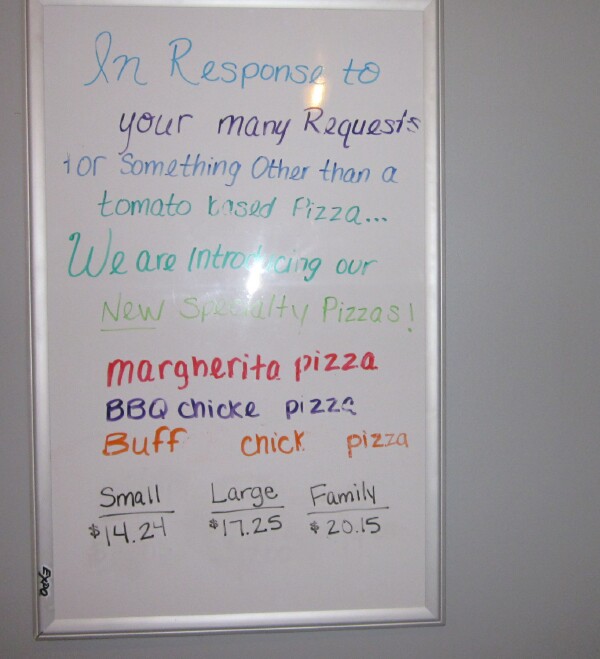 In Response to
your many Requests
for Something Other than a
tomato based Pizza...
We are Introducing our
New Specialty Pizzas!
margherita pizza
BBQ chicke pizza
Buff chick pizza
Small Large Family
$14.24 $17.25 $20.15
EXPO